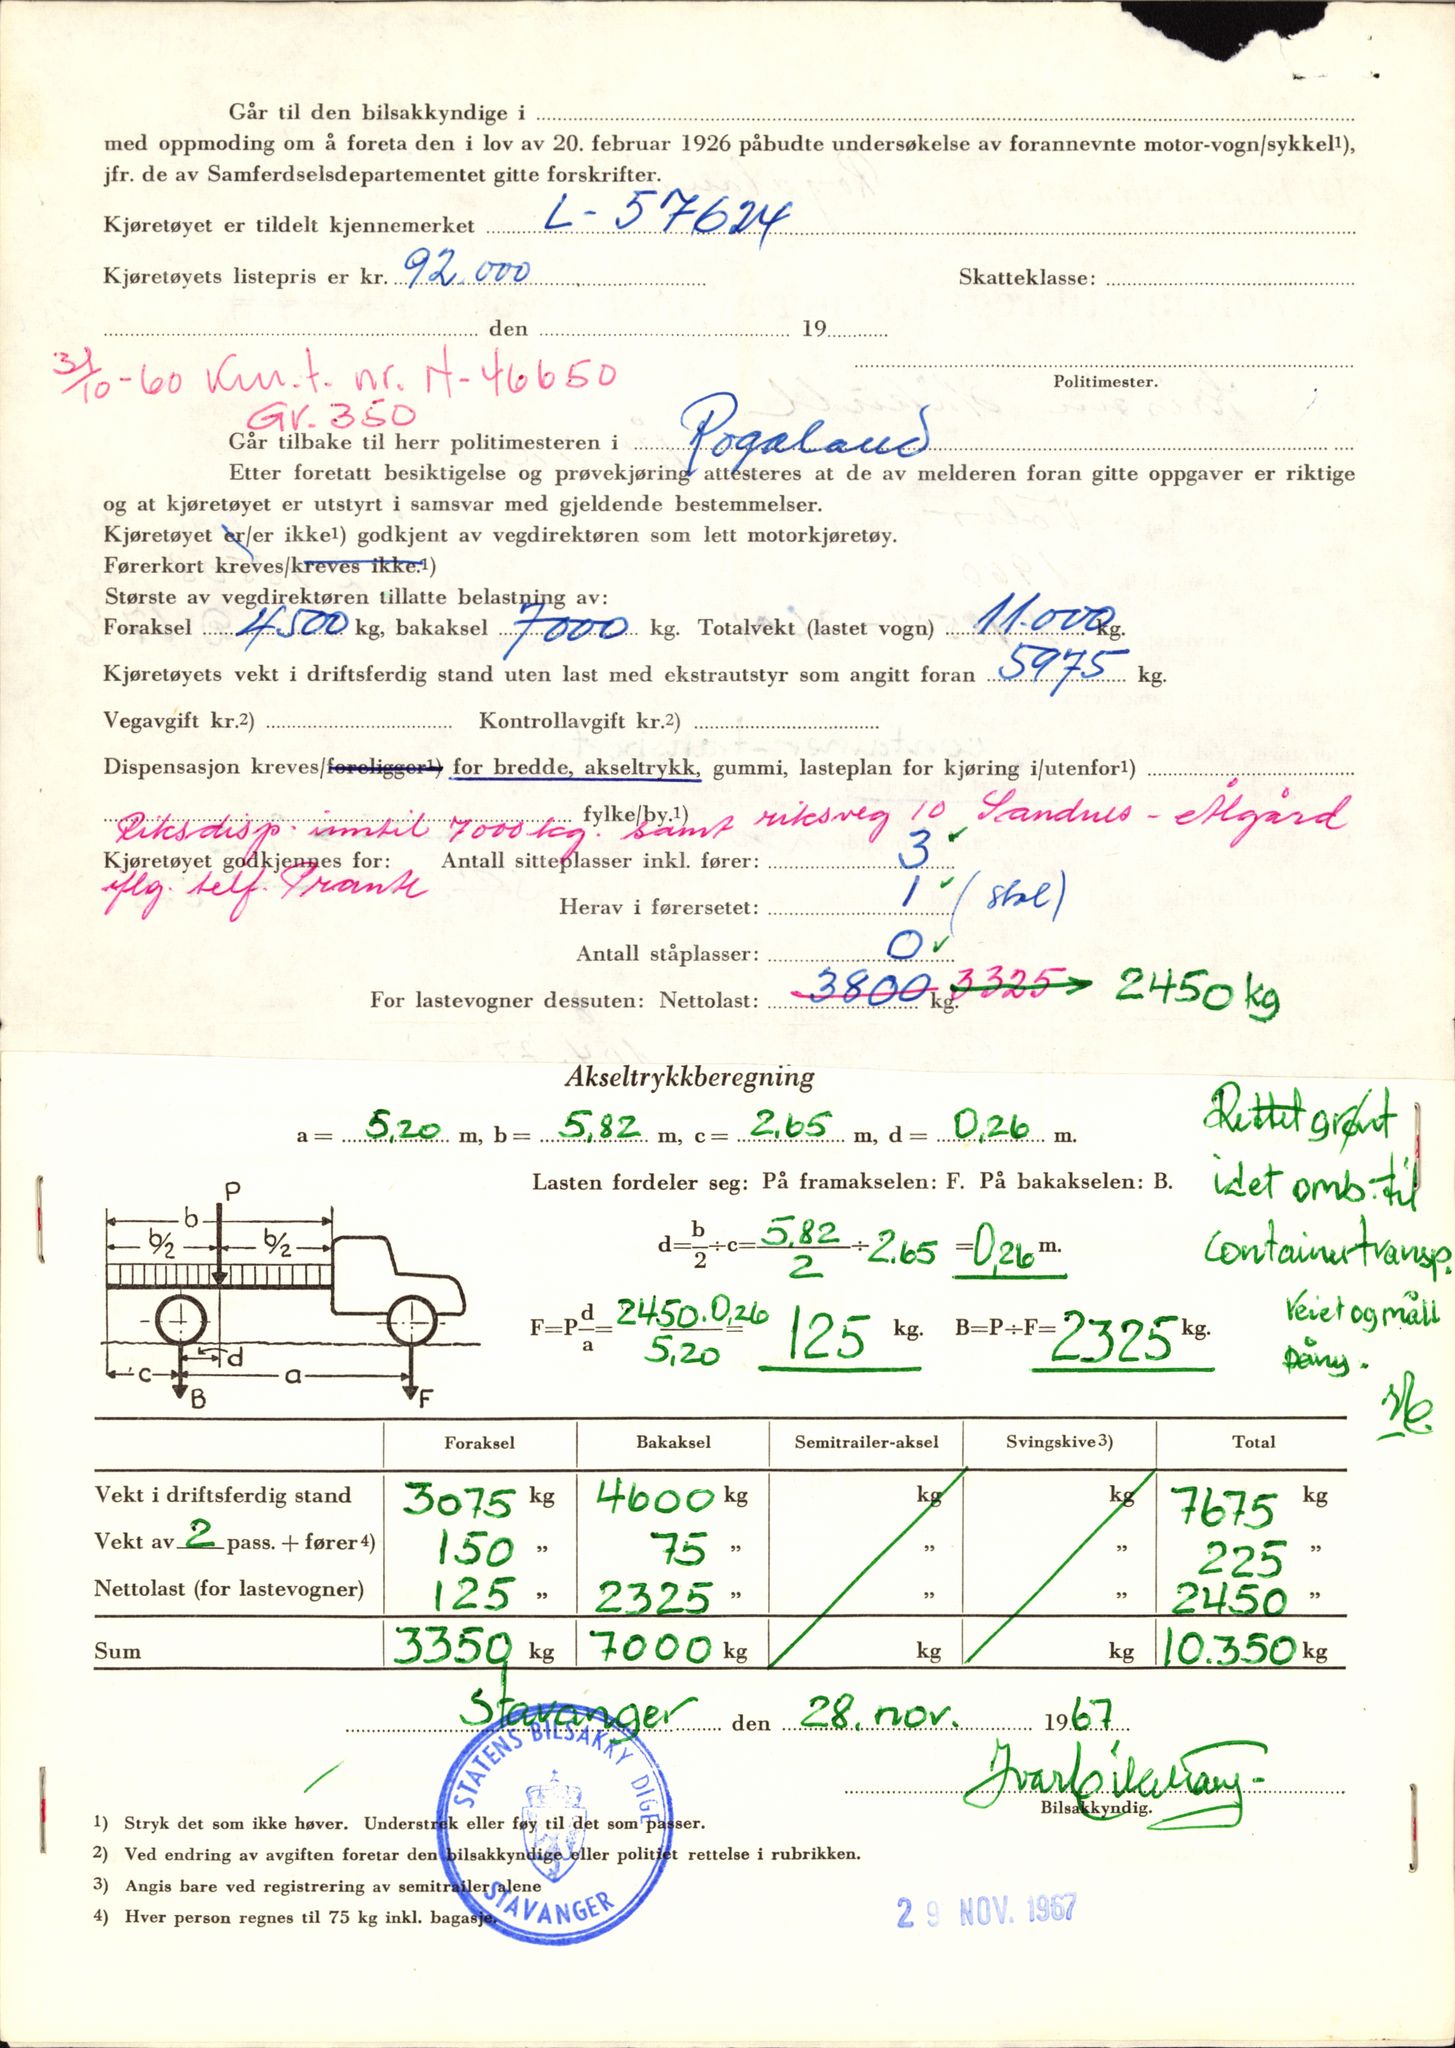 Går til den bilsakkyndige i
med oppmoding om å foreta den i lov av 20. februar 1926 påbudte undersøkelse av forannevnte motor-vogn/sykkel1),
jfr. de av Samferdselsdepartementet gitte forskrifter.
Kjøretøyet er tildelt kjennemerket L-57624
Kjøretøyets listepris er kr. 92.000 Skatteklasse:
den 19
31/10-60 Km.t. nr. A-46650
Politimester.
Gr. 350
Går tilbake til herr politimesteren i Rogaland
Etter foretatt besiktigelse og prøvekjøring attesteres at de av melderen foran gitte oppgaver er riktige
og at kjøretøyet er utstyrt i samsvar med gjeldende bestemmelser.
Kjøretøyet er/er ikke1) godkjent av vegdirektøren som lett motorkjøretøy.
Førerkort kreves/kreves ikke.1)
Største av vegdirektøren tillatte belastning av:
Foraksel 4500 kg, bakaksel 7000 kg. Totalvekt (lastet vogn) 11.000 kg.
Kjøretøyets vekt i driftsferdig stand uten last med ekstrautstyr som angitt foran 5975 kg.
Vegavgift kr.2) Kontrollavgift kr.2)
Dispensasjon kreves/foreligger1) for bredde, akseltrykk, gummi, lasteplan for kjøring i/utenfor1)
fylke/by.1)
Riksdisp. inntil 7000 kg. samt riksveg 10 Sandnes - Ålgård
Kjøretøyet godkjennes for: Antall sitteplasser inkl. fører: 3 ✓
iflg. telf.
Herav i førersetet: 1 ✓ (stol)
Antall ståplasser: 0 ✓
For lastevogner dessuten: Nettolast: 3800 kg. 3325 → 2450 kg
Akseltrykkberegning
a = 5,20 m, b = 5,82 m, c = 2,65 m, d = 0,26 m.
Rettet grønt
idet omb. til
containertransp.
Veiet og målt
påny.
Lasten fordeler seg: På framakselen: F. På bakakselen: B.
d=b/2÷c=5,82/2÷2,65=0,26 m.
F=P d/a=2450.0,26/5,20=125 kg. B=P÷F=2325 kg.
P
b
b/2 b/2
d
c a
B F
Foraksel Bakaksel Semitrailer-aksel Svingskive3) Total
Vekt i driftsferdig stand 3075 kg 4600 kg kg kg 7675 kg
Vekt av 2 pass. + fører4) 150 „ 75 „ „ „ 225 „
Nettolast (for lastevogner) 125 „ 2325 „ „ „ 2450 „
Sum 3350 kg 7000 kg kg kg 10.350 kg
Stavanger den 28. nov. 1967
Bilsakkyndig.
STATENS BILSAKKY DIGE
STAVANGER
1) Stryk det som ikke høver. Understrek eller føy til det som passer.
2) Ved endring av avgiften foretar den bilsakkyndige eller politiet rettelse i rubrikken.
3) Angis bare ved registrering av semitrailer alene
4) Hver person regnes til 75 kg inkl. bagasje.
29 NOV. 1967